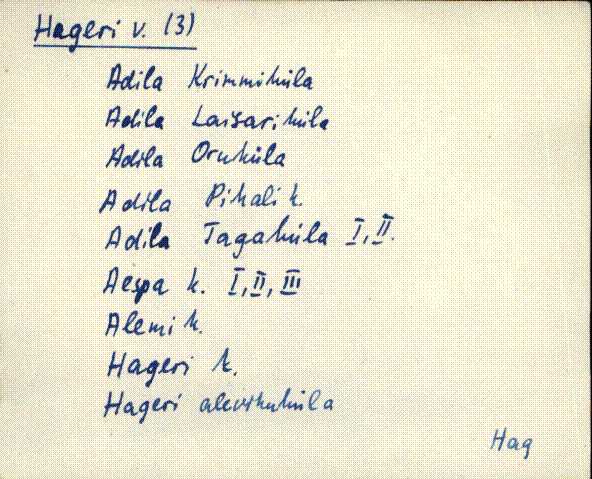 Hageri v. (3)
Adila Krimmiküla
Adila Laisariküla
Adila Oruküla
Adila Pihali k.
Adila Tagaküla I, II.
Aespa k. I, II, III
Alemi k.
Hageri k.
Hageri alevikuküla
Hag